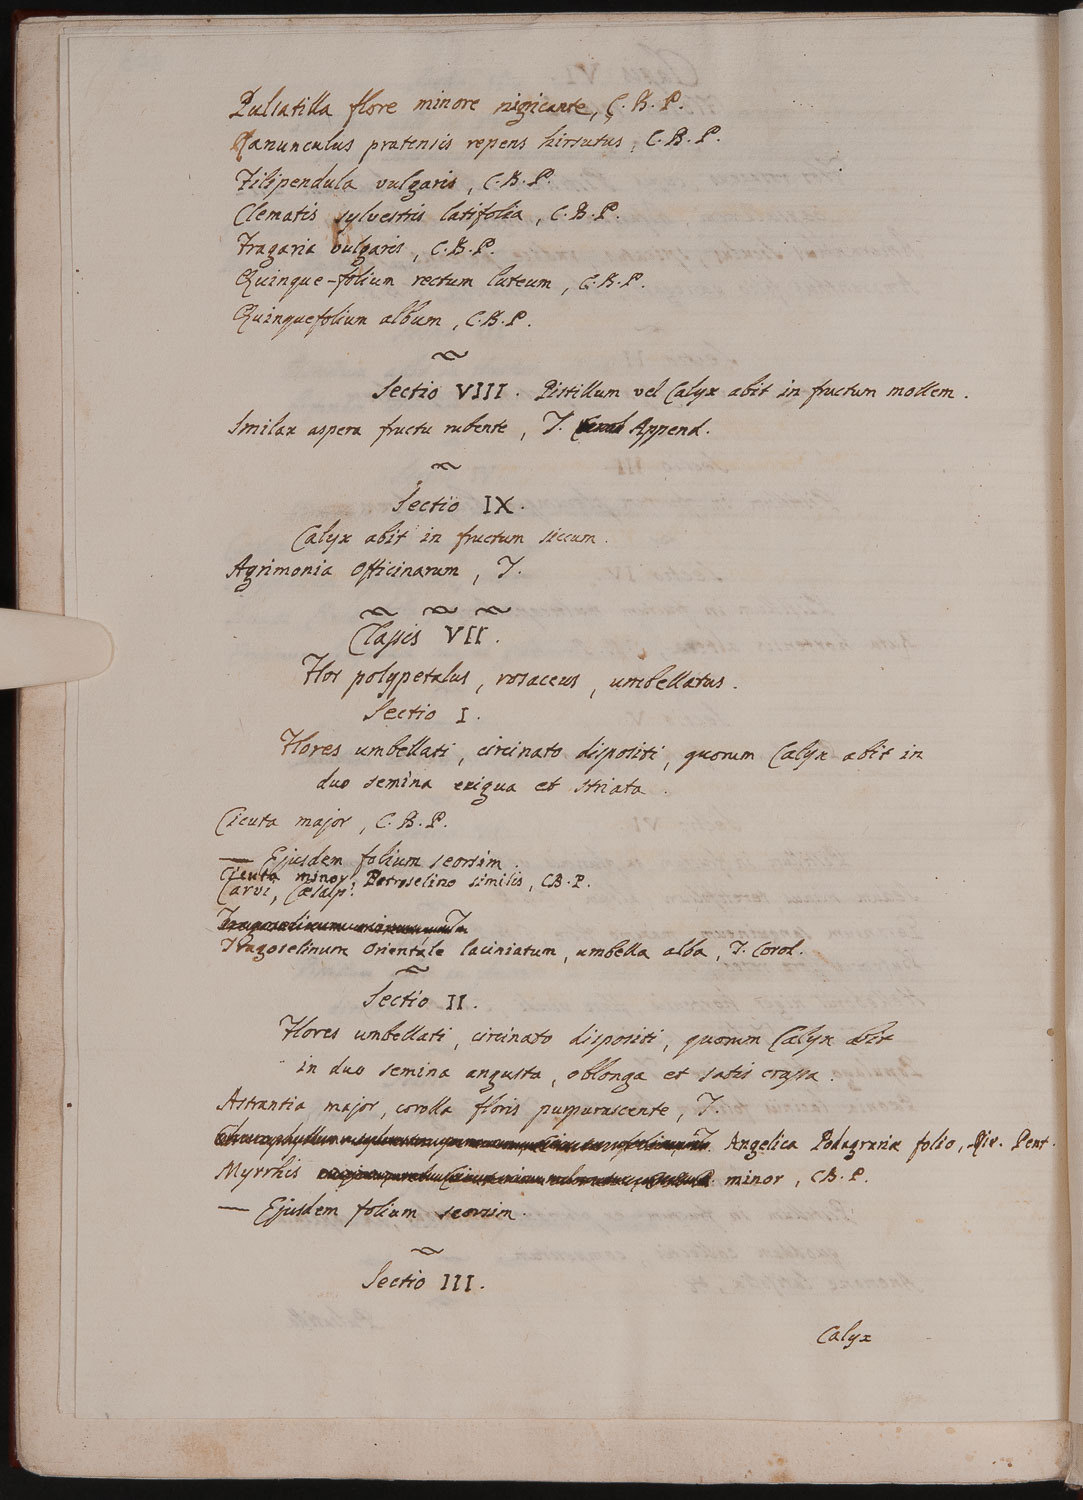 Pulsatilla flore minore nigricante, C.B.P.
Ranunculus pratensis repens hirsutus, C.B.P.
Filipendula vulgaris, C.B.P.
Clematis sylvestris latifolia, C.B.P.
Fragaria vulgaris, C.B.P.
Quinque-folium rectum luteum, C.B.P.
Quinquefolium album, C.B.P.
Sectio VIII. Pistillum vel Calyx abit in fructum mollem.
Smilax aspera fructu rubente, T. Append.
Sectio IX.
Calyx abit in fructum siccum.
Agrimonia Officinarum, T.
Classis VII.
Flos polypetalus, rosaceus, umbellatus.
Sectio I.
Flores umbellati, circinato dispositi, quorum Calyx abit in
duo semina exigua et striata.
Cicuta major, C.B.P.
— Ejusdem folium seorsim.
Cicuta minor, Petroselino similis, CB.P.
Carvi, Cæsalp.
Tragoselinum Orientale laciniatum, umbella alba, T. Corol.
Sectio II.
Flores umbellati, circinato dispositi, quorum Calyx abit
in duo semina angusta, oblonga et satis crassa.
Astrantia major, corolla floris purpurascente, T.
Angelica Podagrariæ folio, Riv. Pent.
Myrrhis minor, CB.P.
— Ejusdem folium seorsim.
Sectio III.
Calyx